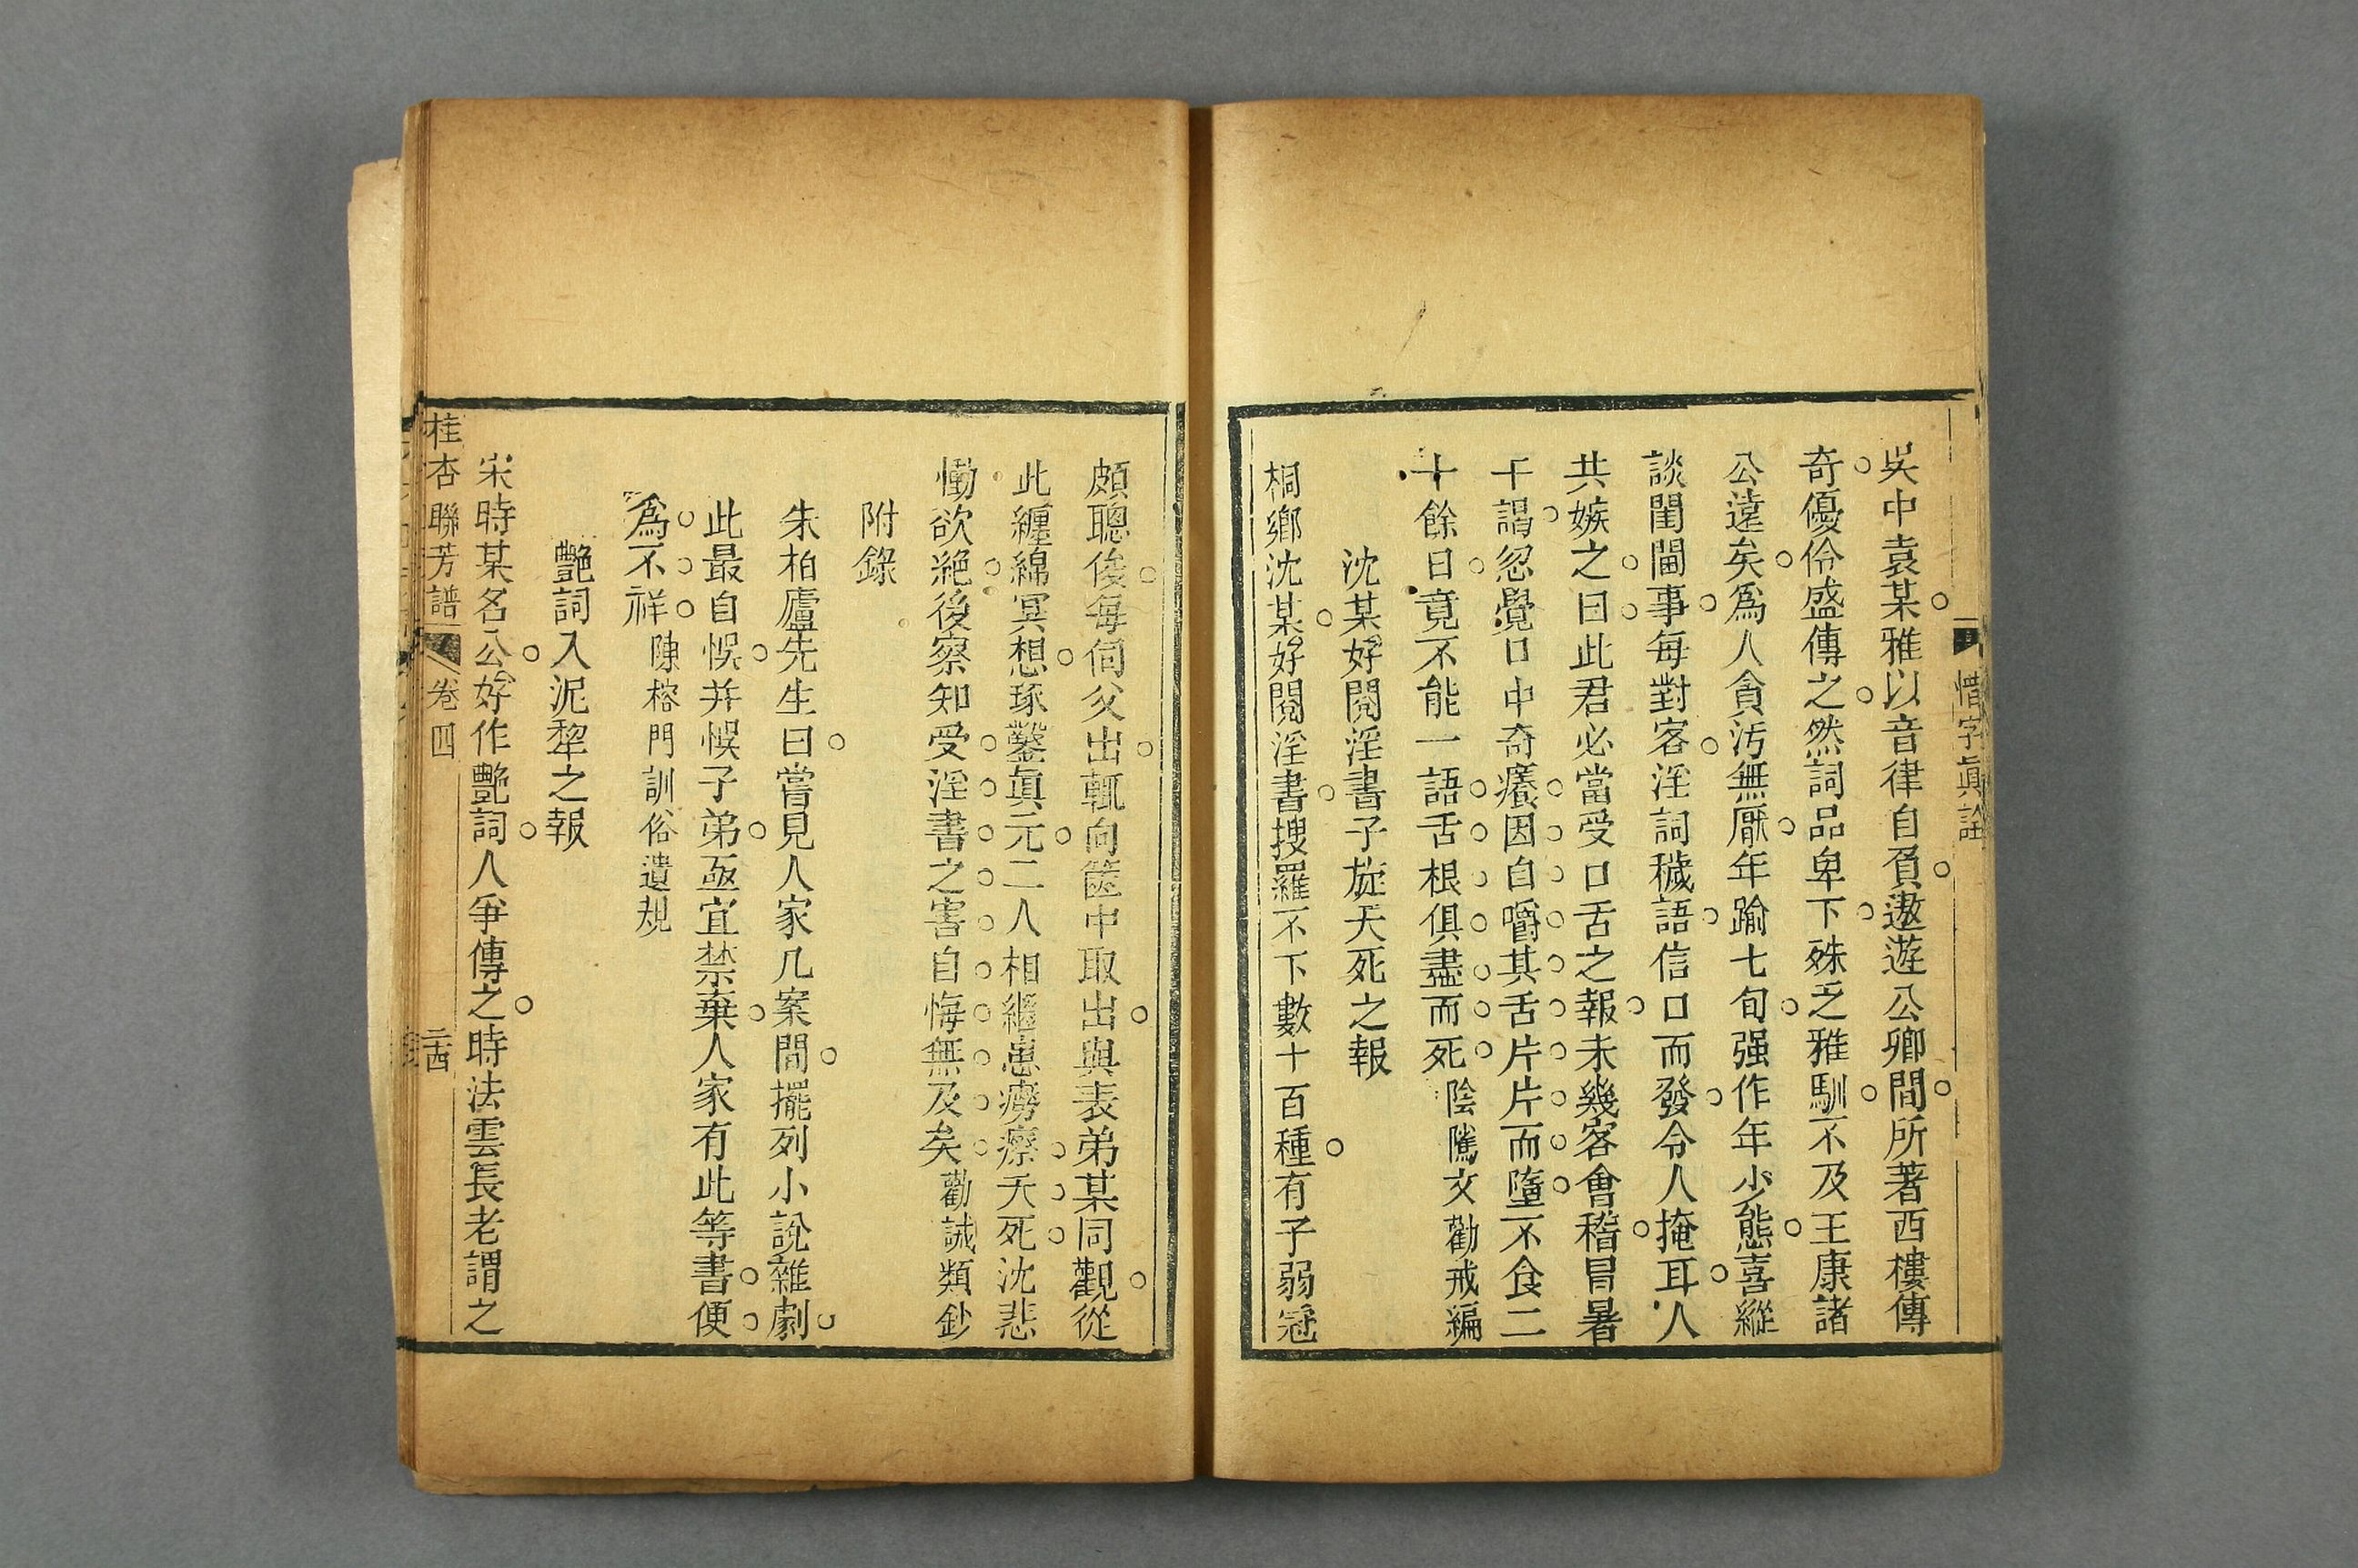 惜字眞詮
吳中袁某雅以音律自負遨遊公卿間所著西樓傳
奇優伶盛傳之然詞品卑下殊乏雅馴不及王康諸
公遠矣爲人貪污無厭年踰七旬强作年少態喜縱
談閨閫事每對客淫詞穢語信口而發令人掩耳人
共嫉之曰此君必當受口舌之報未幾客會稽冒暑
干謁忽覺口中奇癢因自嚼其舌片片而墮不食二
十餘日竟不能一語舌根俱盡而死陰隲文勸戒編
沈某好閱淫書子旋夭死之報
桐鄉沈某好閱淫書搜羅不下數十百種有子弱冠
頗聰俊每伺父出輒向篋中取出與表弟某同觀從
此纏綿冥想琢鑿眞元二人相繼患癆瘵夭死沈悲
慟欲絕後察知受淫書之害自悔無及矣勸誡類鈔
附錄
朱柏廬先生曰嘗見人家几案間擺列小說雜劇
此最自悞并悞子弟亟宜禁棄人家有此等書便
爲不祥陳榕門訓俗遺規
艷詞入泥犂之報
宋時某名公好作艷詞人爭傳之時法雲長老謂之
桂杏聯芳譜 卷四 二十四